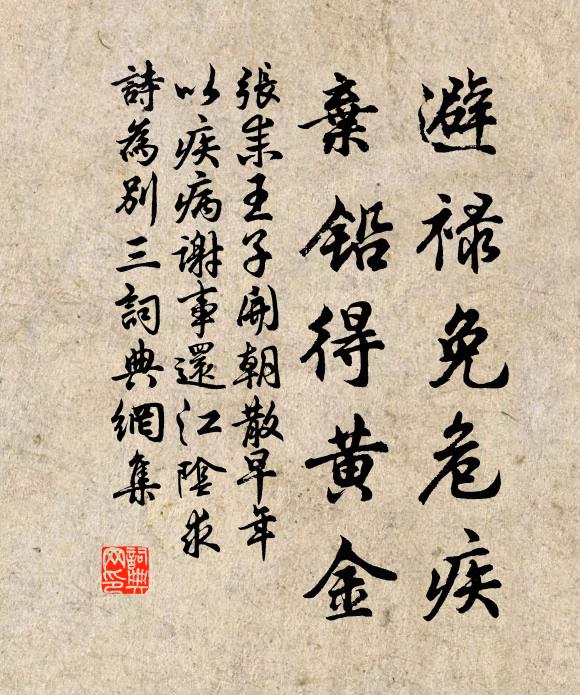 避禄免危疾
棄鉛得黄金
張耒王子開朝散早年
以疾病謝事還江陰求
詩為别三詞典網集
詞典网印